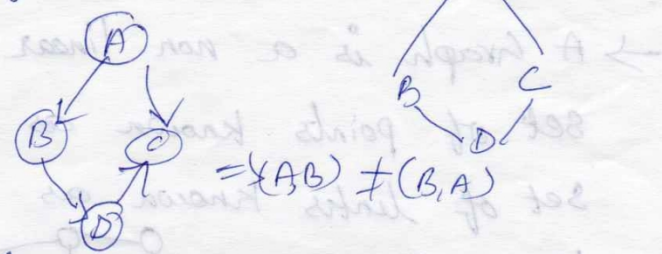 A
B
C
D
B
C
D
=> (A,B) ≠ (B,A)